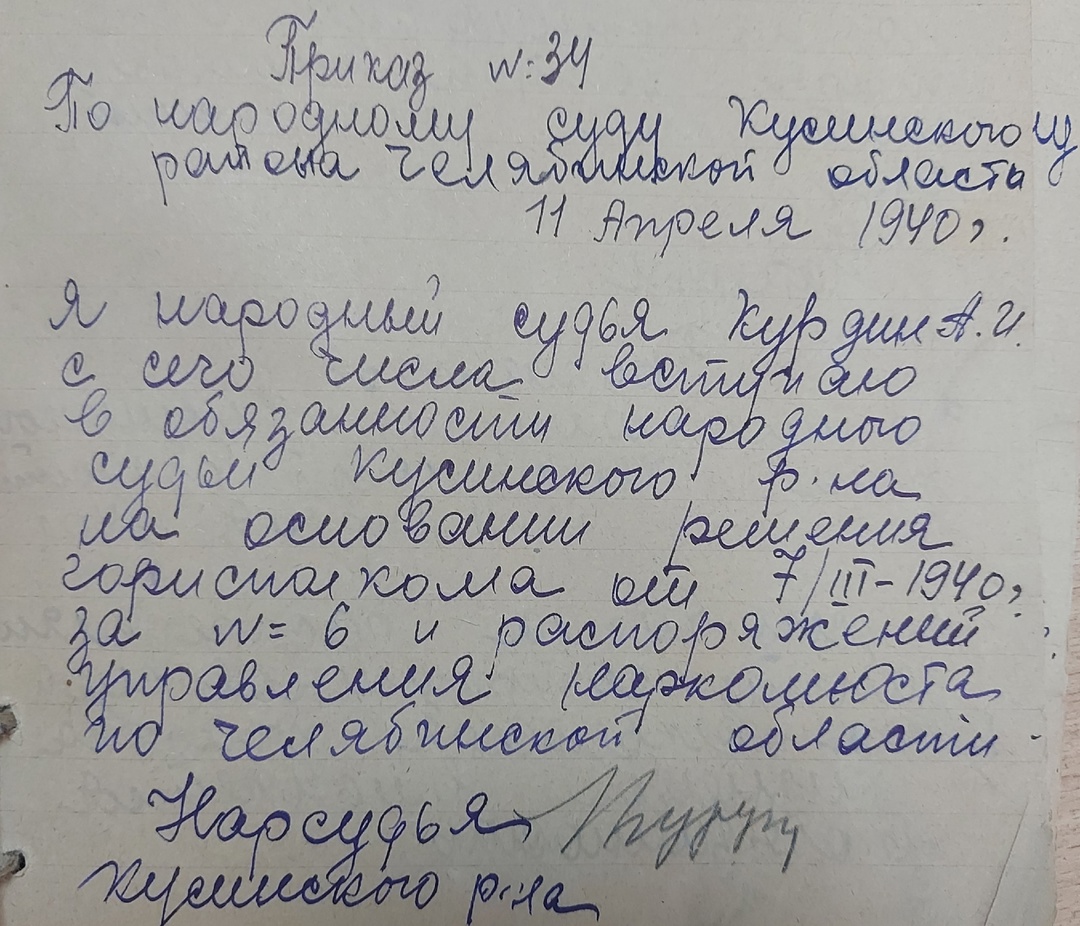 Приказ N: 34
По народному суду Кусинского
района Челябинской области
11 Апреля 1940 г.
Я народный судья Курдин А.И.
с сего числа вступаю
в обязанности народного
судьи Кусинского р.на
на основании решения
горисполкома от 7/III-1940 г.
за N= 6 и распоряжений
управления наркомюста
по Челябинской области
Нарсудья
Кусинского р-на